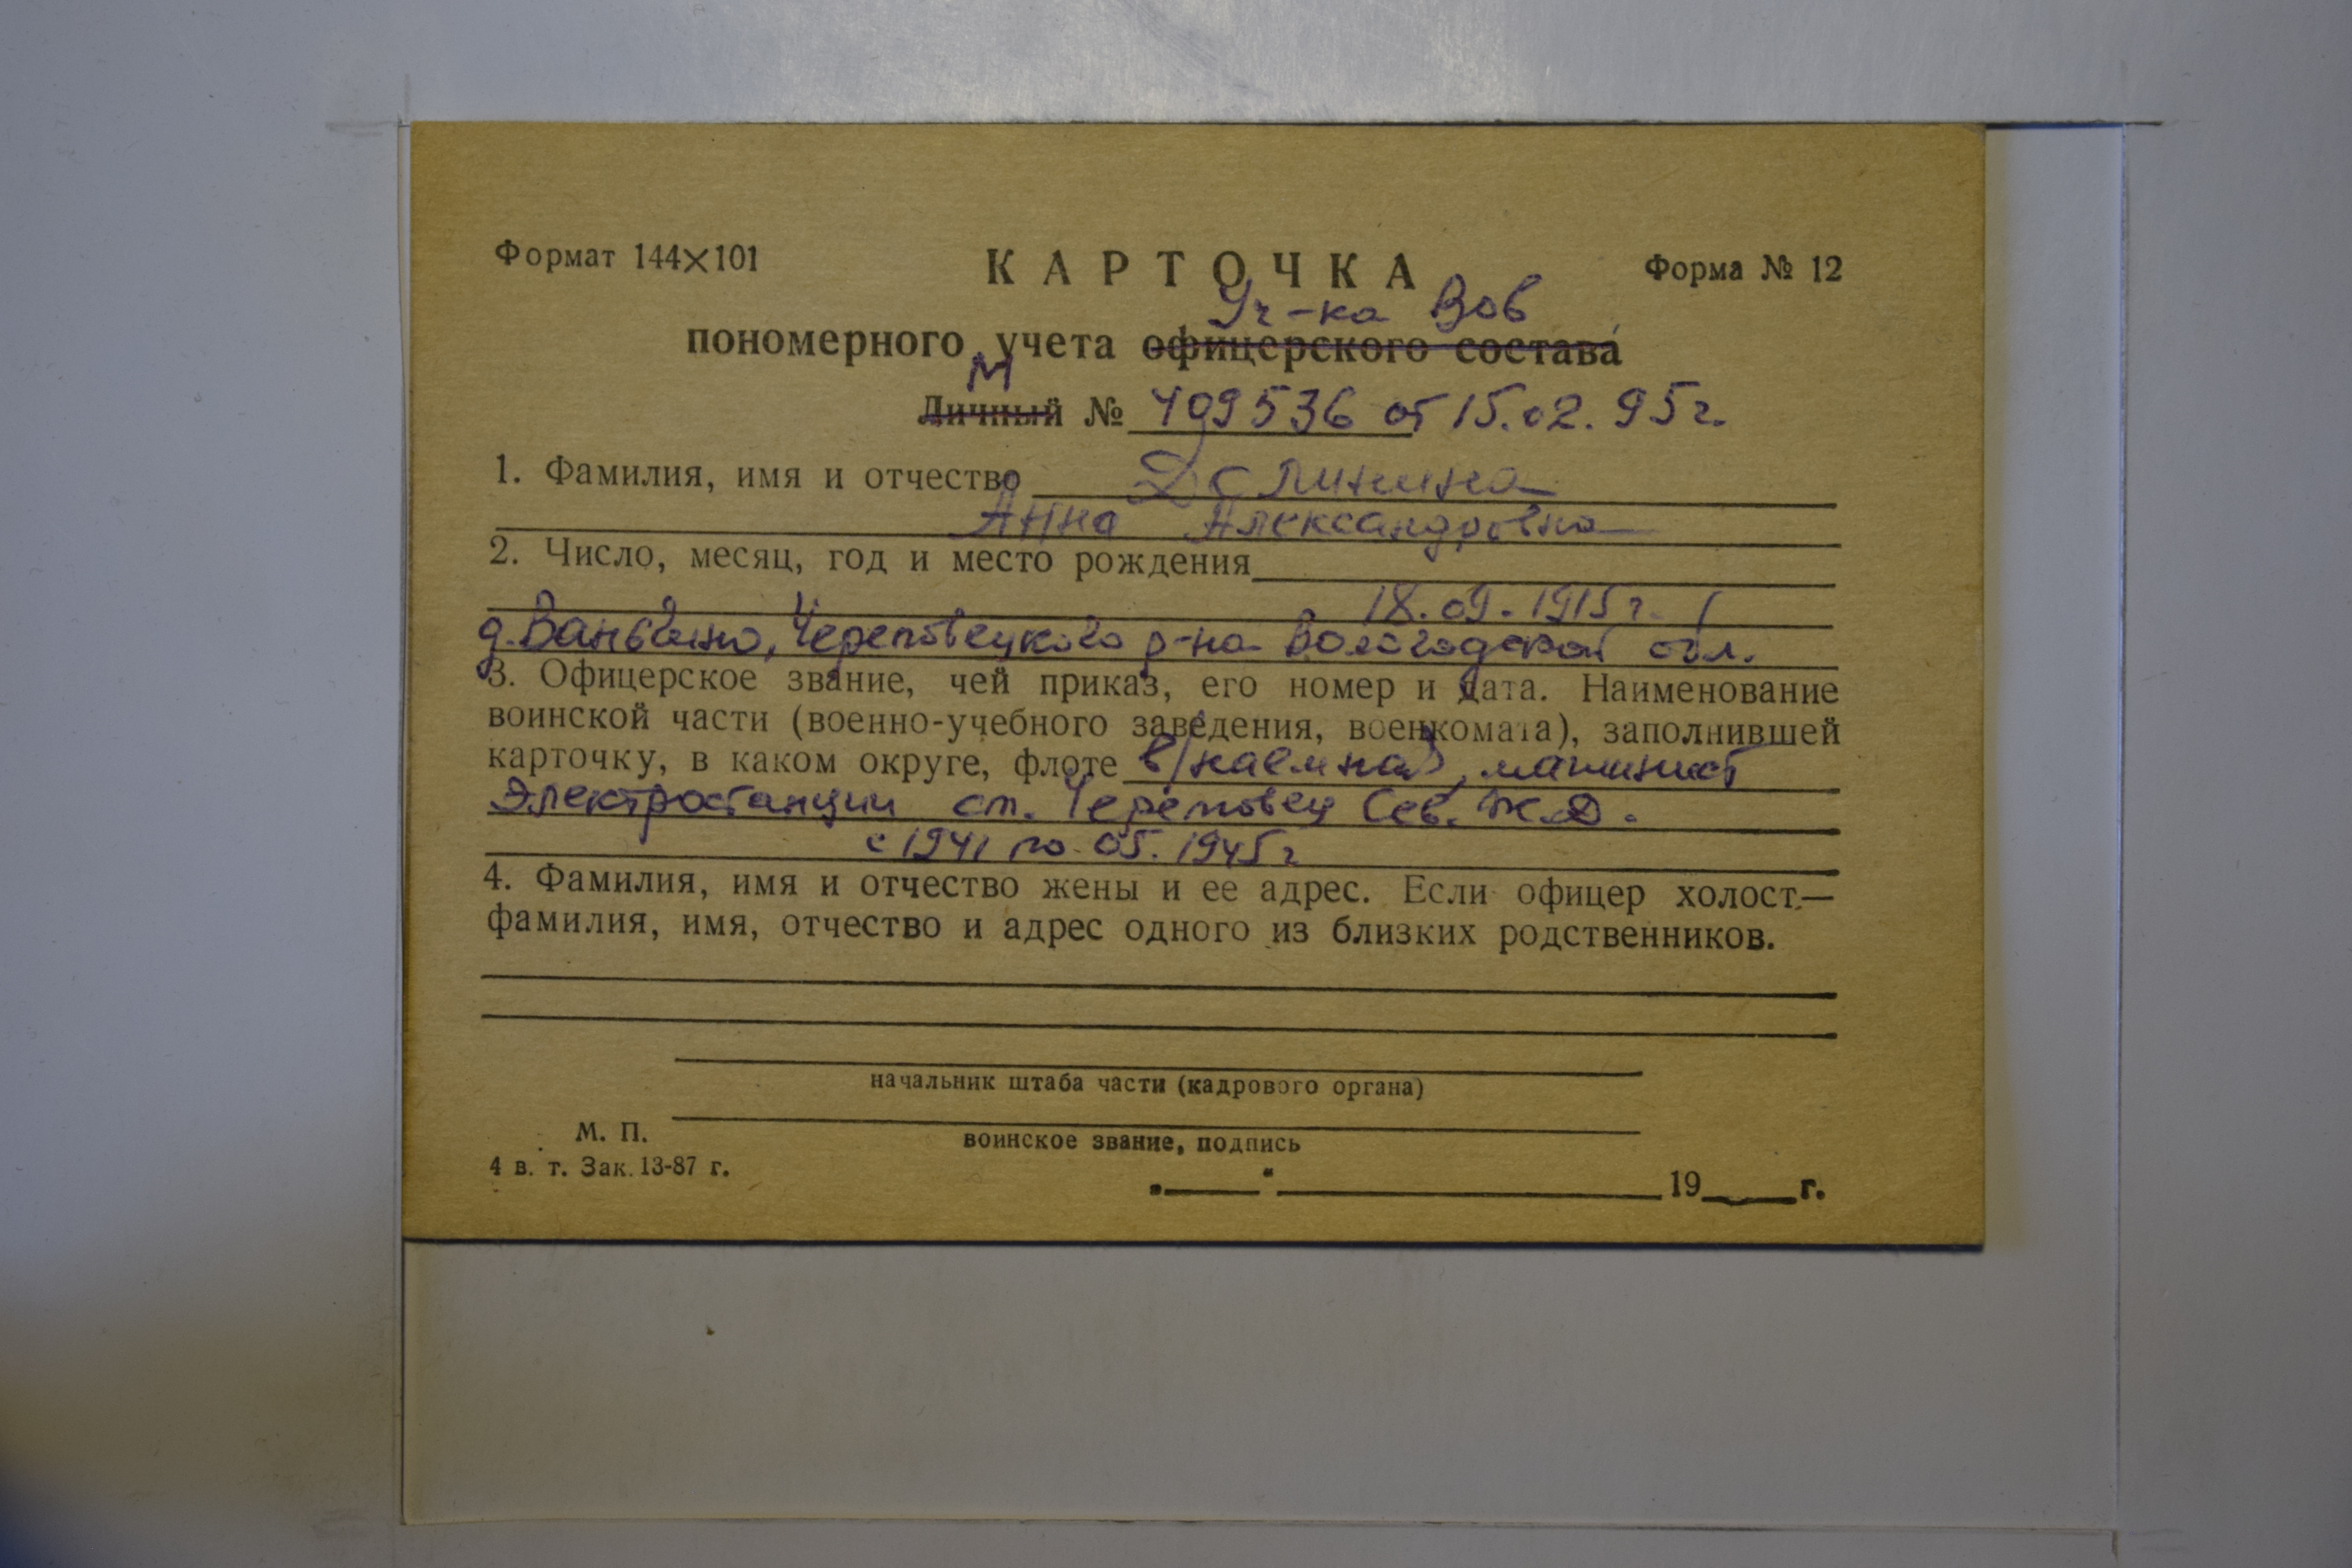 Формат 144×101
КАРТОЧКА
Форма № 12
Уч-ка Вов
пономерного учета офицерского состава
М
Личный № 409536 от 15.02.95г.
1. Фамилия, имя и отчество Долинина
Анна Александровна
2. Число, месяц, год и место рождения
18.09.1915г.
Череповецкого р-на Вологодской обл.
3. Офицерское звание, чей приказ, его номер и дата. Наименование
воинской части (военно-учебного заведения, военкомата), заполнившей
карточку, в каком округе, флоте в/наемная, машинист
Электростанции ст. Череповец Сев. Ж.Д.
с 1941 по 05.1945г
4. Фамилия, имя и отчество жены и ее адрес. Если офицер холост—
фамилия, имя, отчество и адрес одного из близких родственников.
начальник штаба части (кадрового органа)
М. П.
воинское звание, подпись
4 в. т. Зак. 13-87 г.
19 г.